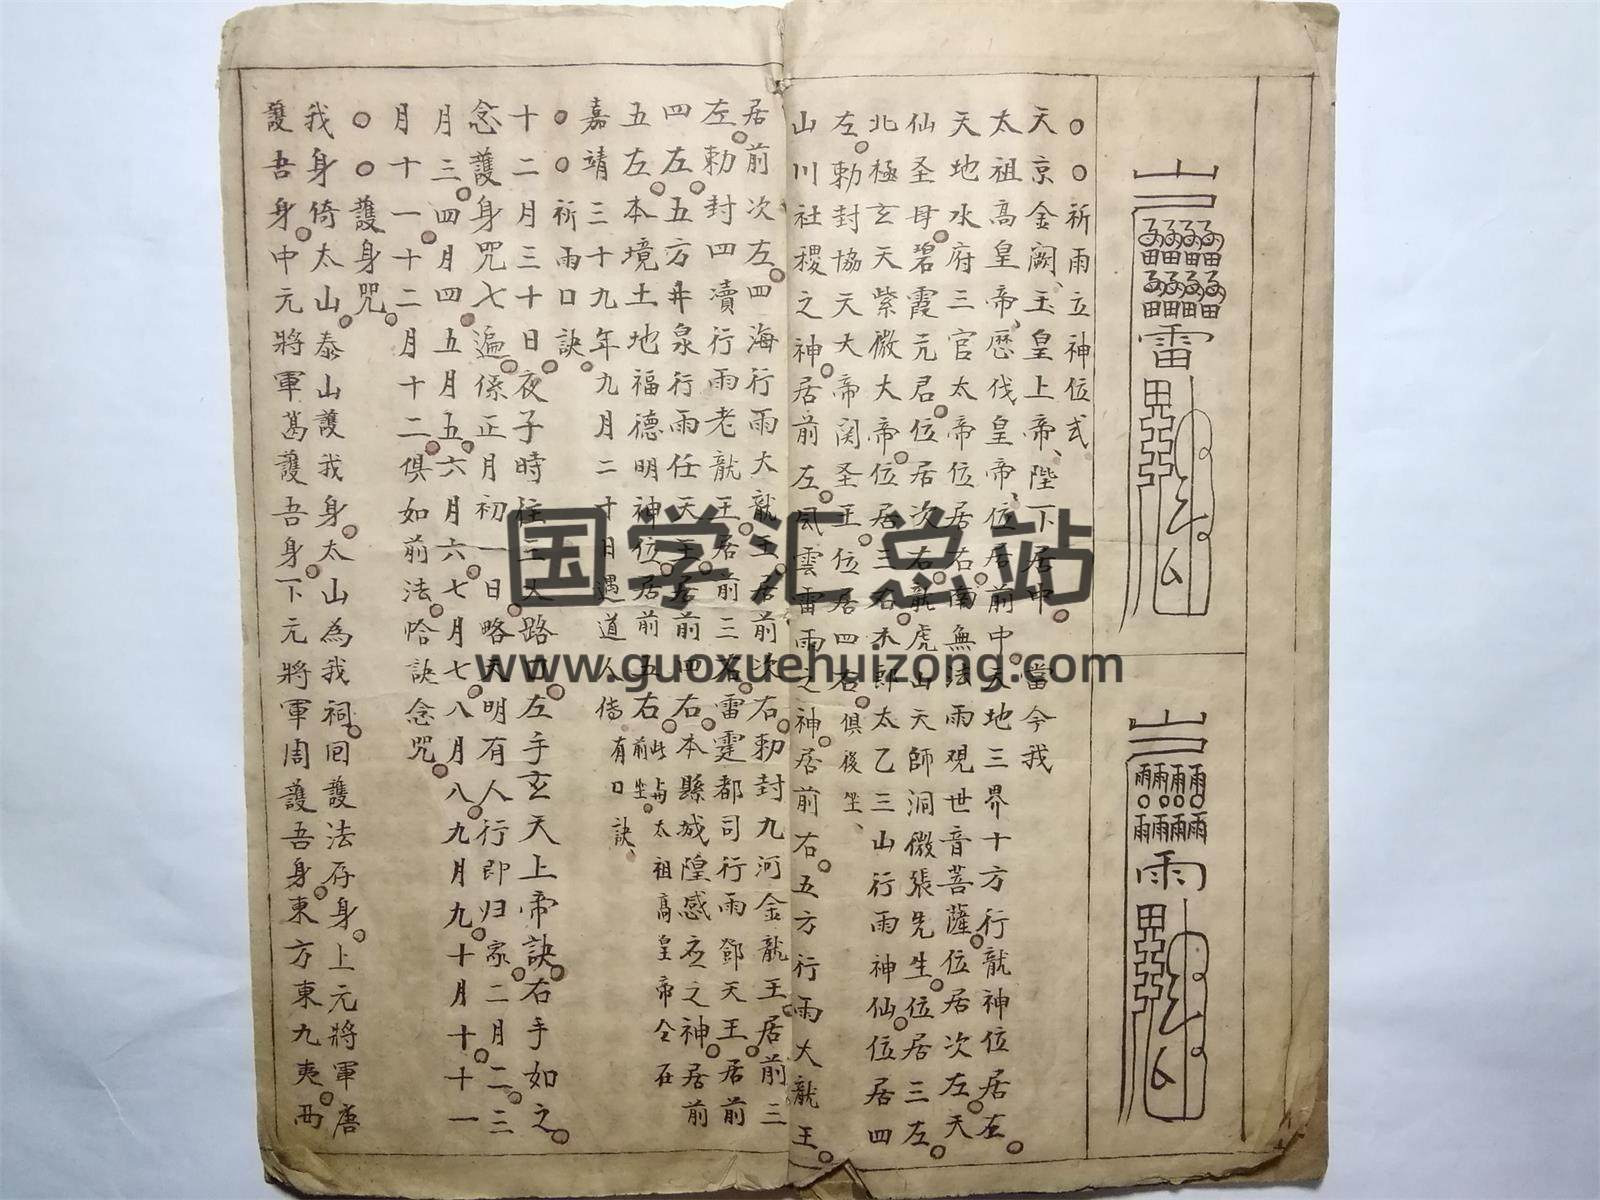 雷
雨
〇〇祈雨立神位式
天京金闕、玉皇上帝、陛下居中〇當今我
太祖高皇帝、歷伐皇帝位居前中〇天地三界十方行龍神位居左〇
天地水府三官太帝位居右〇南無法雨覌世音菩薩位居次左〇天
仙圣母〇碧霞元君位居次右〇龍虎山天師洞微張先生〇位居三左〇
北極玄天紫微大帝〇位居三右〇木郎太乙三山行雨神仙〇位居四
左〇勅封協天大帝関圣〇王位居四右〇俱後坐、
山川社稷之神〇居前左〇風雲雷雨之神〇居前右〇五方行雨大龍王〇
居前次左〇四海行雨大龍王〇居前次右〇勅封九河金龍王〇居前三
左〇勅封四瀆行雨老龍王〇居前三右〇雷霆都司行雨鄧天王〇居前
四左〇五方井泉行雨任天王〇居前四右〇本縣城隍感应之神〇居前
五左〇本境土地福德明神位〇居前五右〇此前與坐〇太祖高皇帝仝在
嘉靖三十九年九月二十日遇道人傳有口訣、
〇〇祈雨口訣〇
十二月三十日〇夜子時往三大路口〇左手玄天上帝訣〇右手如之〇
念護身咒七遍〇係正月初一日〇略天明有人行即归家〇二月二〇三
月三〇四月四〇五月五〇六月六〇七月七〇八月八〇九月九〇十月十〇十一
月十一〇十二月十二〇俱如前法〇恰訣念咒〇
〇〇護身咒〇
我身倚太山〇泰山護我身〇太山為我祠〇囘護法存身〇上元將軍唐
護吾身〇中元將軍葛護吾身〇下元將軍周護吾身〇東方東九夷〇西
国学汇总站
www.guoxuehuizong.com